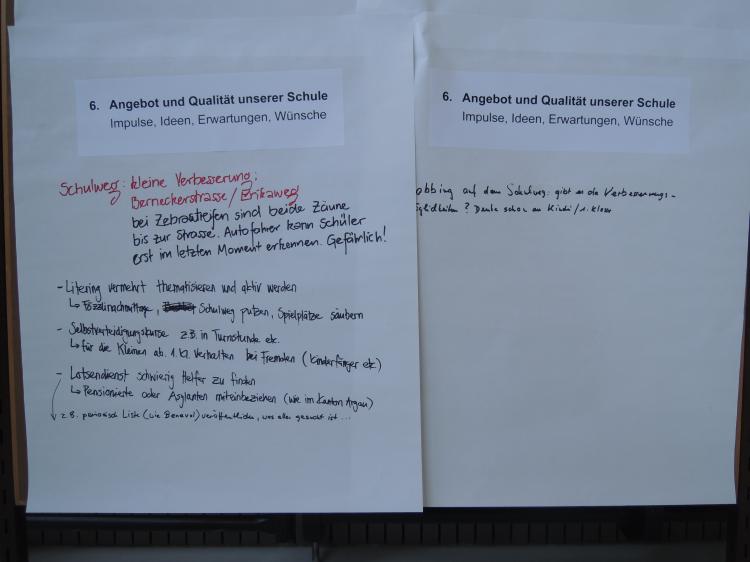 6. Angebot und Qualität unserer Schule
Impulse, Ideen, Erwartungen, Wünsche
Schulweg: kleine Verbesserung:
Berneckerstrasse/Erikaweg
bei Zebrastreifen sind beide Zäune
bis zur Strasse. Autofahrer kann Schüler
erst im letzten Moment erkennen. Gefährlich!
- Litering vermehrt thematisieren und aktiv werden
↳ Fözzlinachmittage, Schulweg putzen, Spielplätze säubern
- Selbstverteidigungskurse z.B. in Turnstunde etc.
↳ für die Kleinen ab. 1.Kl. Verhalten bei Fremden (Kinderfänger etc)
- Lotsendienst schwierig Helfer zu finden
↳ Pensionierte oder Asylanten miteinbeziehen (wie im Kanton Argau)
z.B. periodisch Liste (wie Benevol) veröffentlichen, was alles gesucht ist ...
6. Angebot und Qualität unserer Schule
Impulse, Ideen, Erwartungen, Wünsche
obbing auf dem Schulweg: gibt es da Verbesserungs-
öglichkeiten? Denke schon an Kindi/1. Klasse